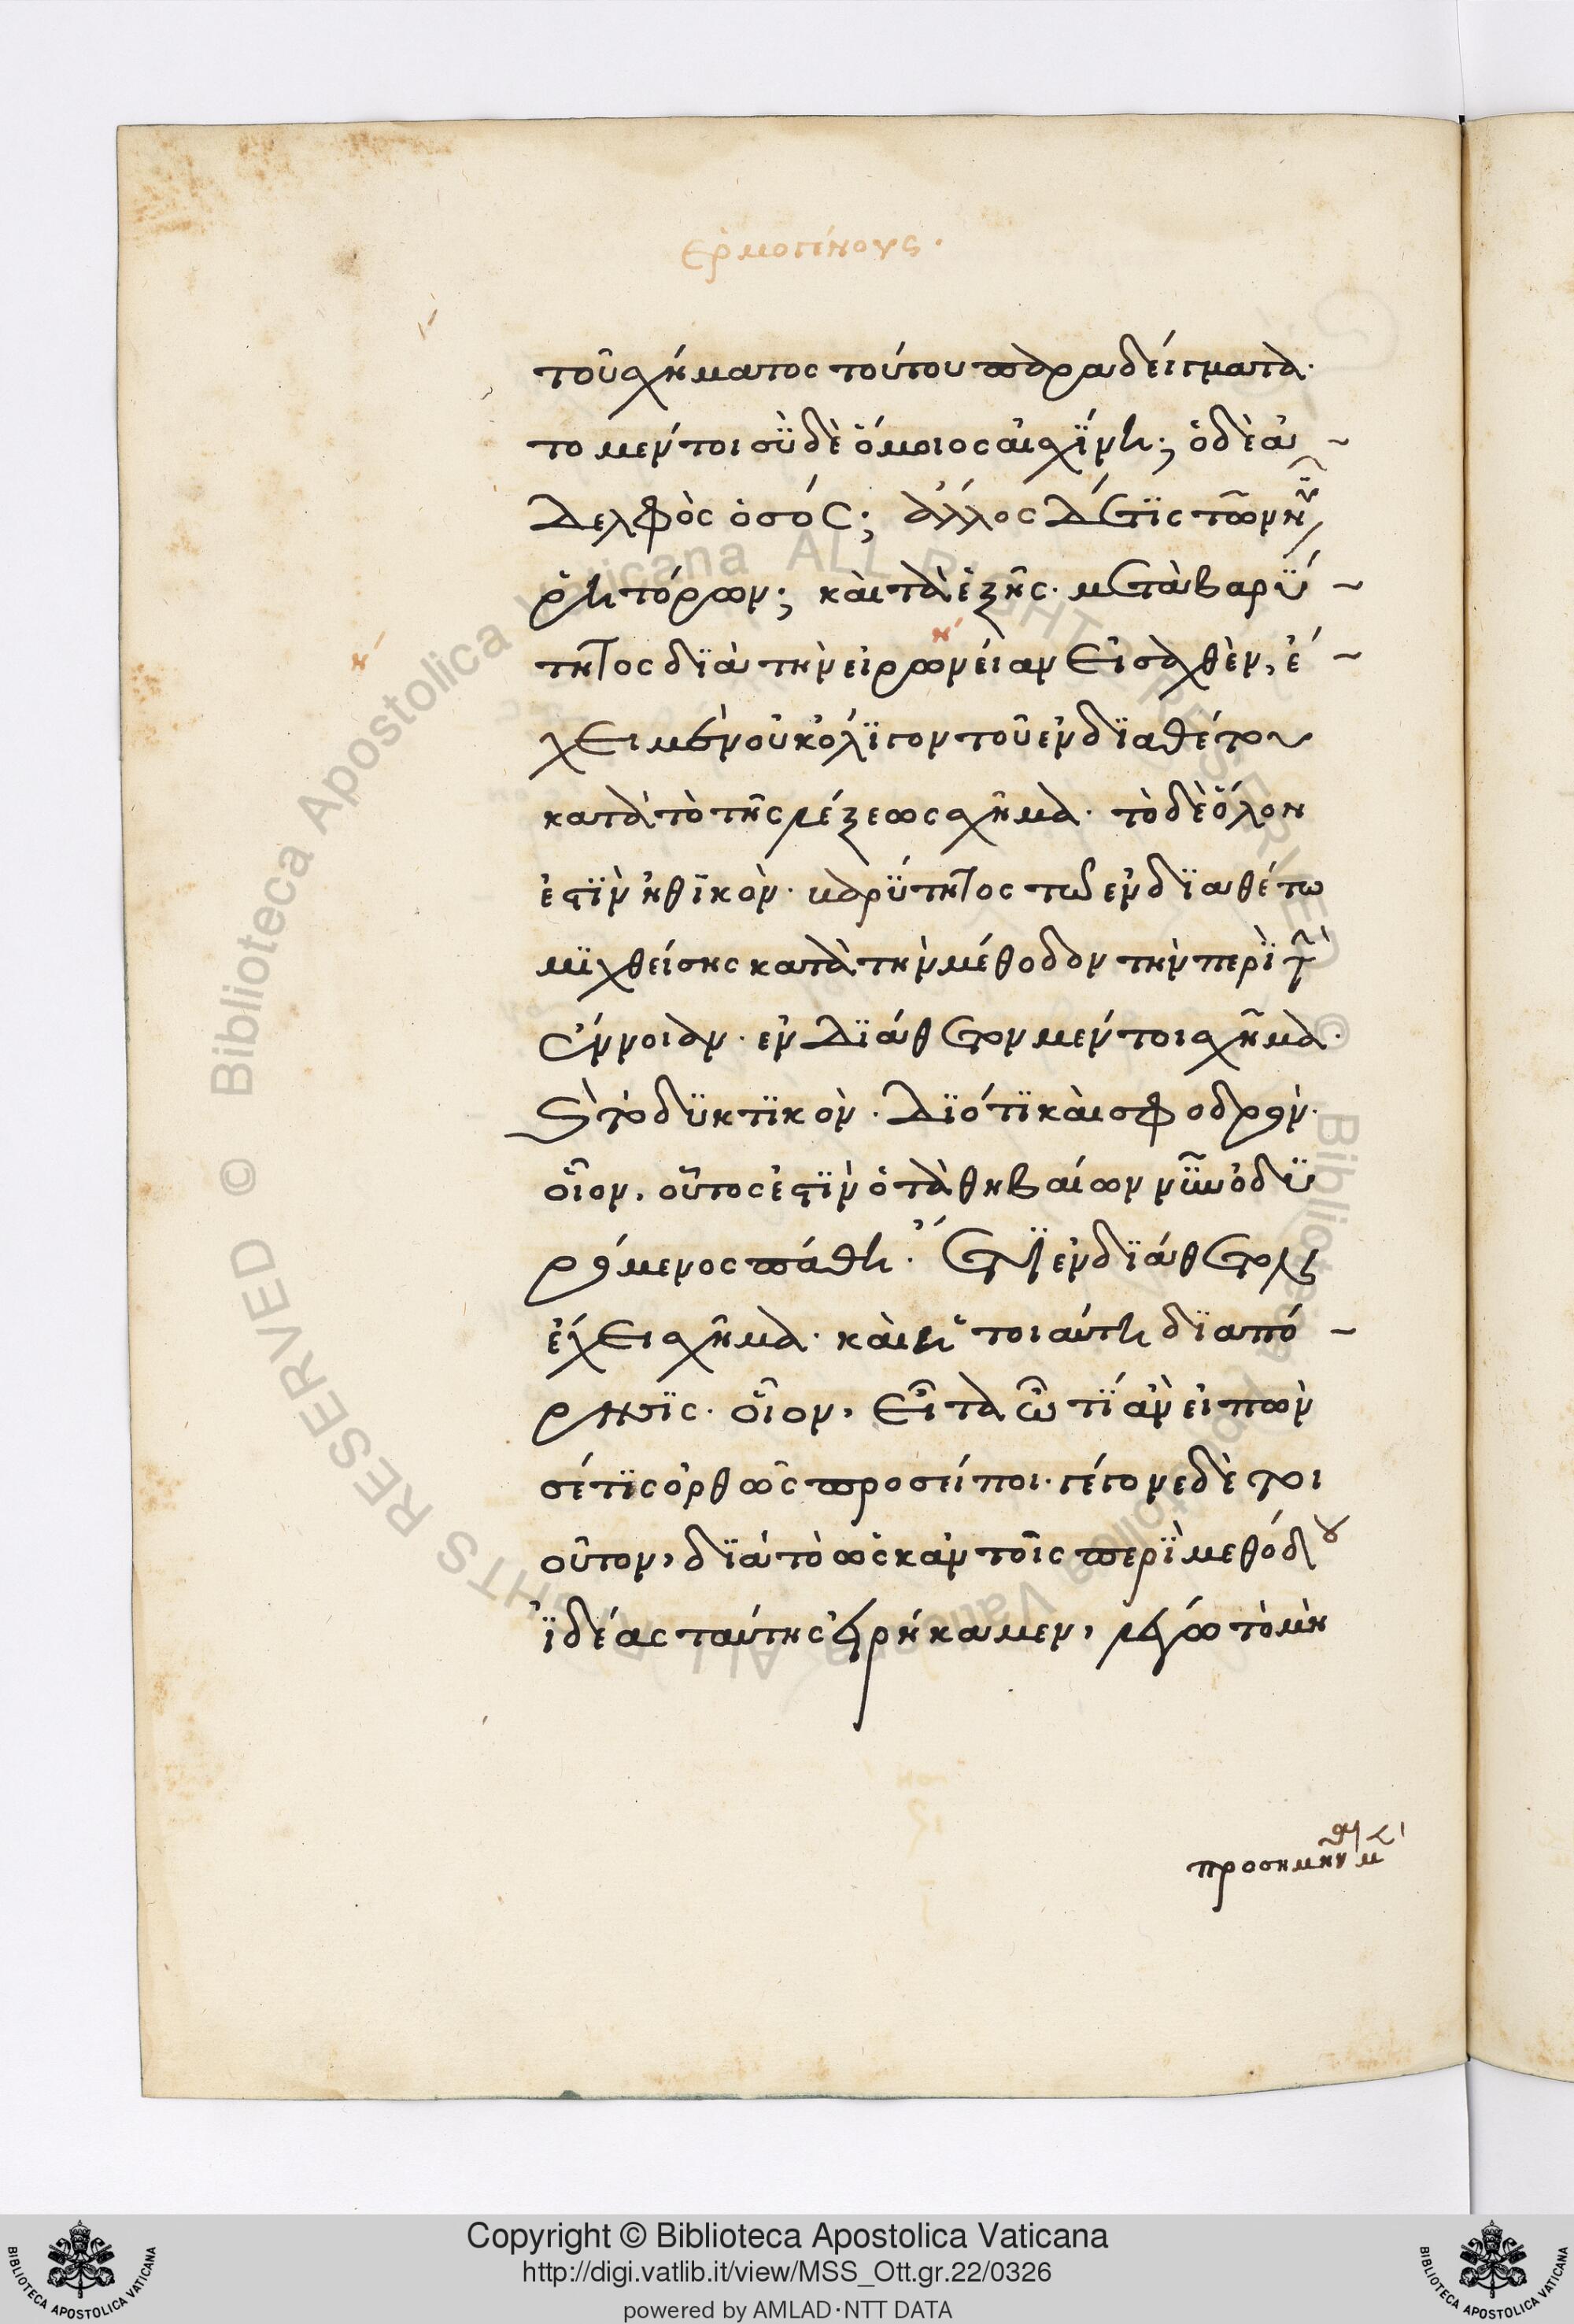 Ἑρμογένους.
τοῦ σχήματος τούτου παραδείγματα.
το μέν τοι σὺ δὲ ὅμοιος αἰσχίνη; ὁ δὲ ἀ
δελφὸς ὁ σός; ἄλλος δέ τις τῶν νῦν
ῥητόρων; καὶ τὰ ἑξῆς. μετὰ βαρύ
τητος διὰ τὴν εἰρωνείαν εἰσαχθὲν, ἔ
χει μὲν οὐκ ὀλίγον τοῦ ἐνδιαθέτου
κατὰ τὸ τῆς λέξεως σχῆμα. τὸ δὲ ὅλον
ἐστὶν ἠθικὸν. βαρύτητος τῶ ἐνδιαθέτω
μιχθείσης κατὰ τὴν μέθοδον τὴν περὶ τὴν
ἔννοιαν. ἐνδιάθετον μέν τοι σχῆμα.
καὶ τὸ δυκτικὸν. διότι καὶ σφοδρὸν.
οἷον, οὗτος ἐστὶν ὁ τὰ θηβαίων νῦν ὀδυ
ρόμενος πάθη. ἔτι ἐνδιάθετον
ἔχει σχῆμα. καὶ ἡ τοιαύτη διαπό
ρησις. οἷον, εἶτα ὦ τί ἂν εἰπὼν
σέ τις ὀρθῶς προσείποι. γέγονε δὲ τοι
οῦτον, διὰ τὸ ὡς κἀν τοῖς περὶ μεθόδου
ἰδέας ταύτης εἰρήκαμεν, λέγω τὸ μὴ
προσημην
Copyright © Biblioteca Apostolica Vaticana
http://digi.vatlib.it/view/MSS_Ott.gr.22/0326
powered by AMLAD·NTT DATA